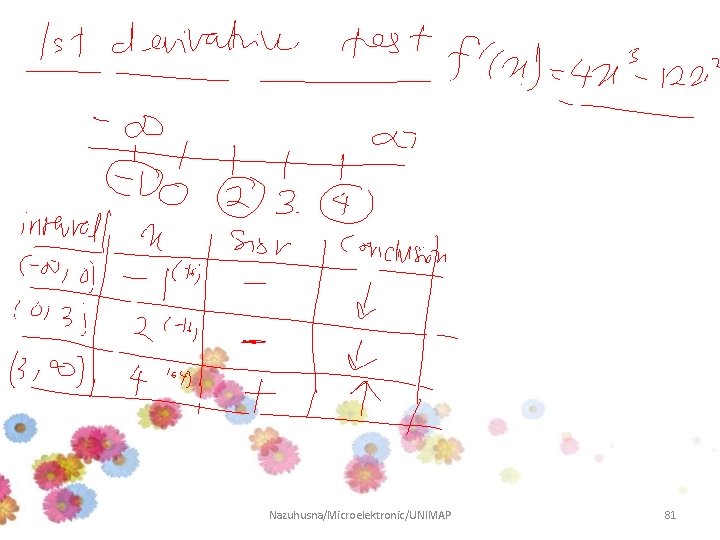 1st derivative test f'(x) = 4x³ - 12x²
-∞ ∞
-1 0 2 3. 4
interval x Sign Conclusion
(-∞, 0) -1 (-16) - ↓
(0, 3) 2 (-16) - ↓
(3, ∞) 4 (64) + ↑
Nazuhusna/Microelektronic/UNIMAP 81